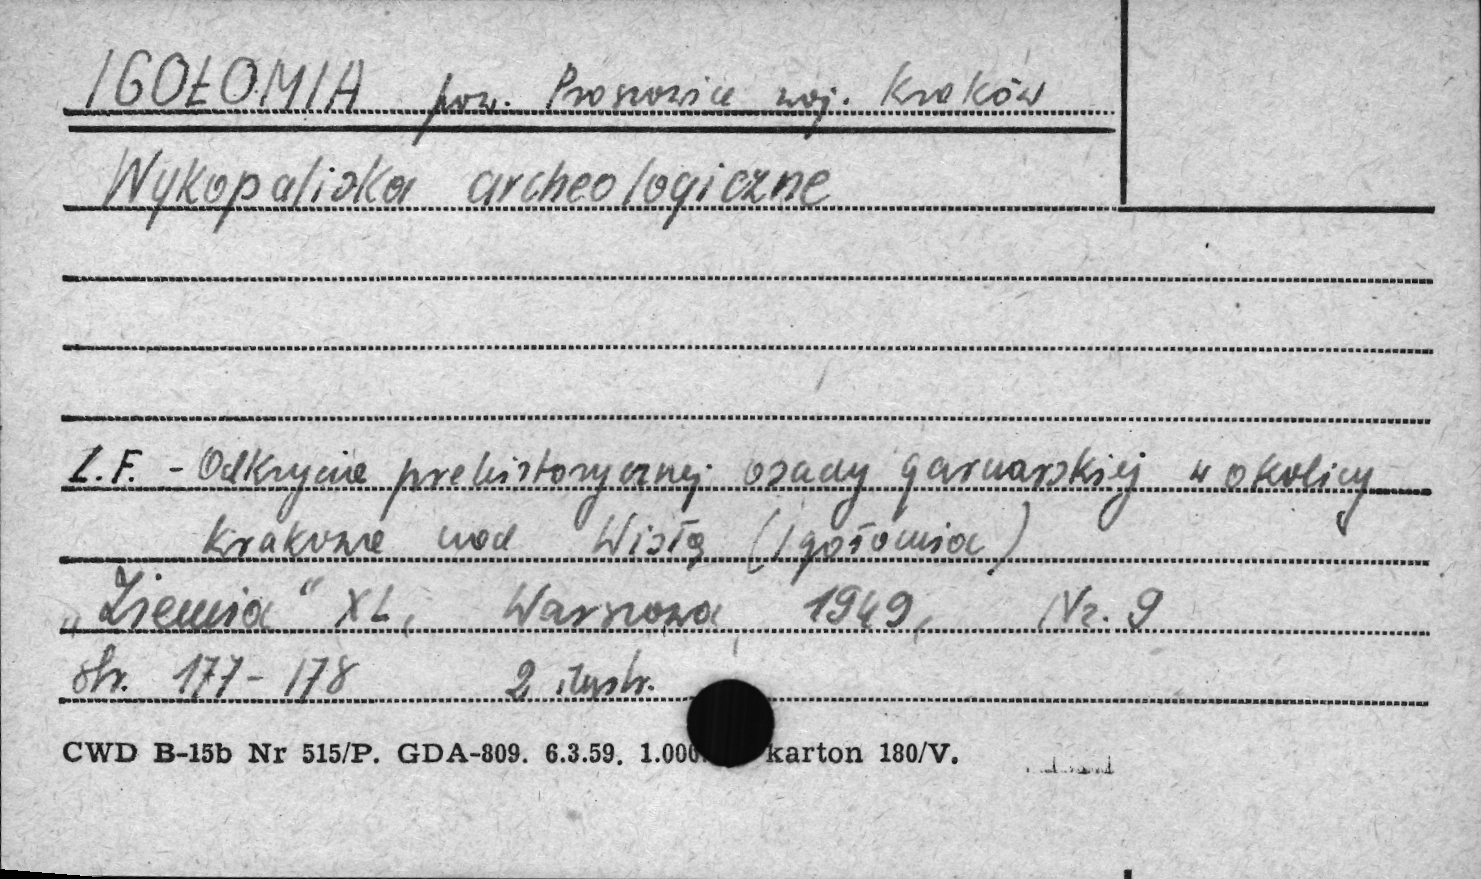 IGOŁOMIA pow. Proszowice woj. Kraków
Wykopaliska archeologiczne
Z.F. - Odkrycie prehistorycznej osady garnarskiej w okolicy
Krakowa nad Wisłą (Igołomia)
„Ziemia" XL, Warszawa 1949, Nr. 9
str. 177-178 2 ilustr.
CWD B-15b Nr 515/P. GDA-809. 6.3.59. 1.000. karton 180/V.